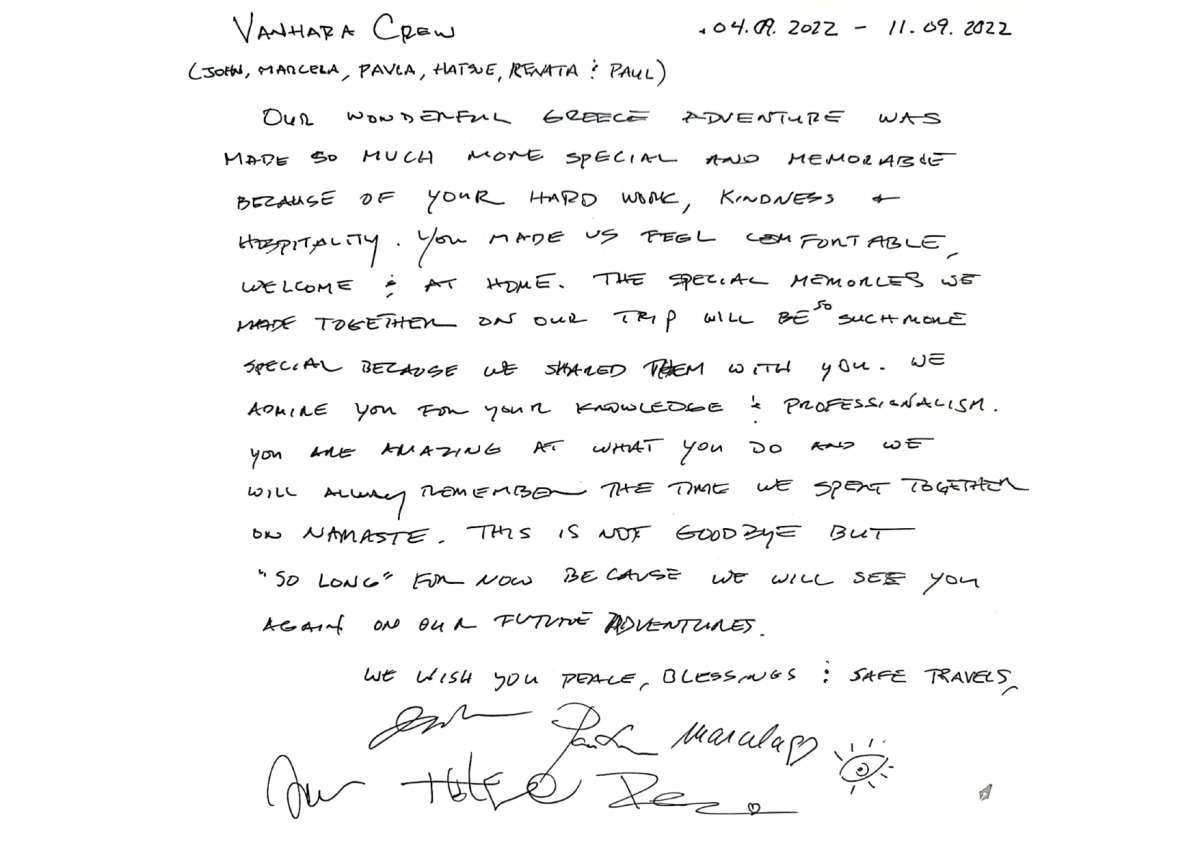 VANHARA CREW .04.09.2022 - 11.09.2022
(JOHN, MARCELA, PAVLA, RENATA & PAUL)
OUR WONDERFUL GREECE ADVENTURE WAS
MADE SO MUCH MORE SPECIAL AND MEMORABLE
BECAUSE OF YOUR HARD WORK, KINDNESS +
HOSPITALITY. YOU MADE US FEEL COMFORTABLE,
WELCOME & AT HOME. THE SPECIAL MEMORIES WE
MADE TOGETHER ON OUR TRIP WILL BE SO SUCH MORE
SPECIAL BECAUSE WE SHARED THEM WITH YOU. WE
ADMIRE YOU FOR YOUR KNOWLEDGE & PROFESSIONALISM.
YOU ARE AMAZING AT WHAT YOU DO AND WE
WILL ALWAY REMEMBER THE TIME WE SPENT TOGETHER
ON NAMASTE. THIS IS NOT GOODBYE BUT
"SO LONG" FOR NOW BECAUSE WE WILL SEE YOU
AGAIN ON OUR FUTURE ADVENTURES.
WE WISH YOU PEACE, BLESSINGS & SAFE TRAVELS,
Marcela